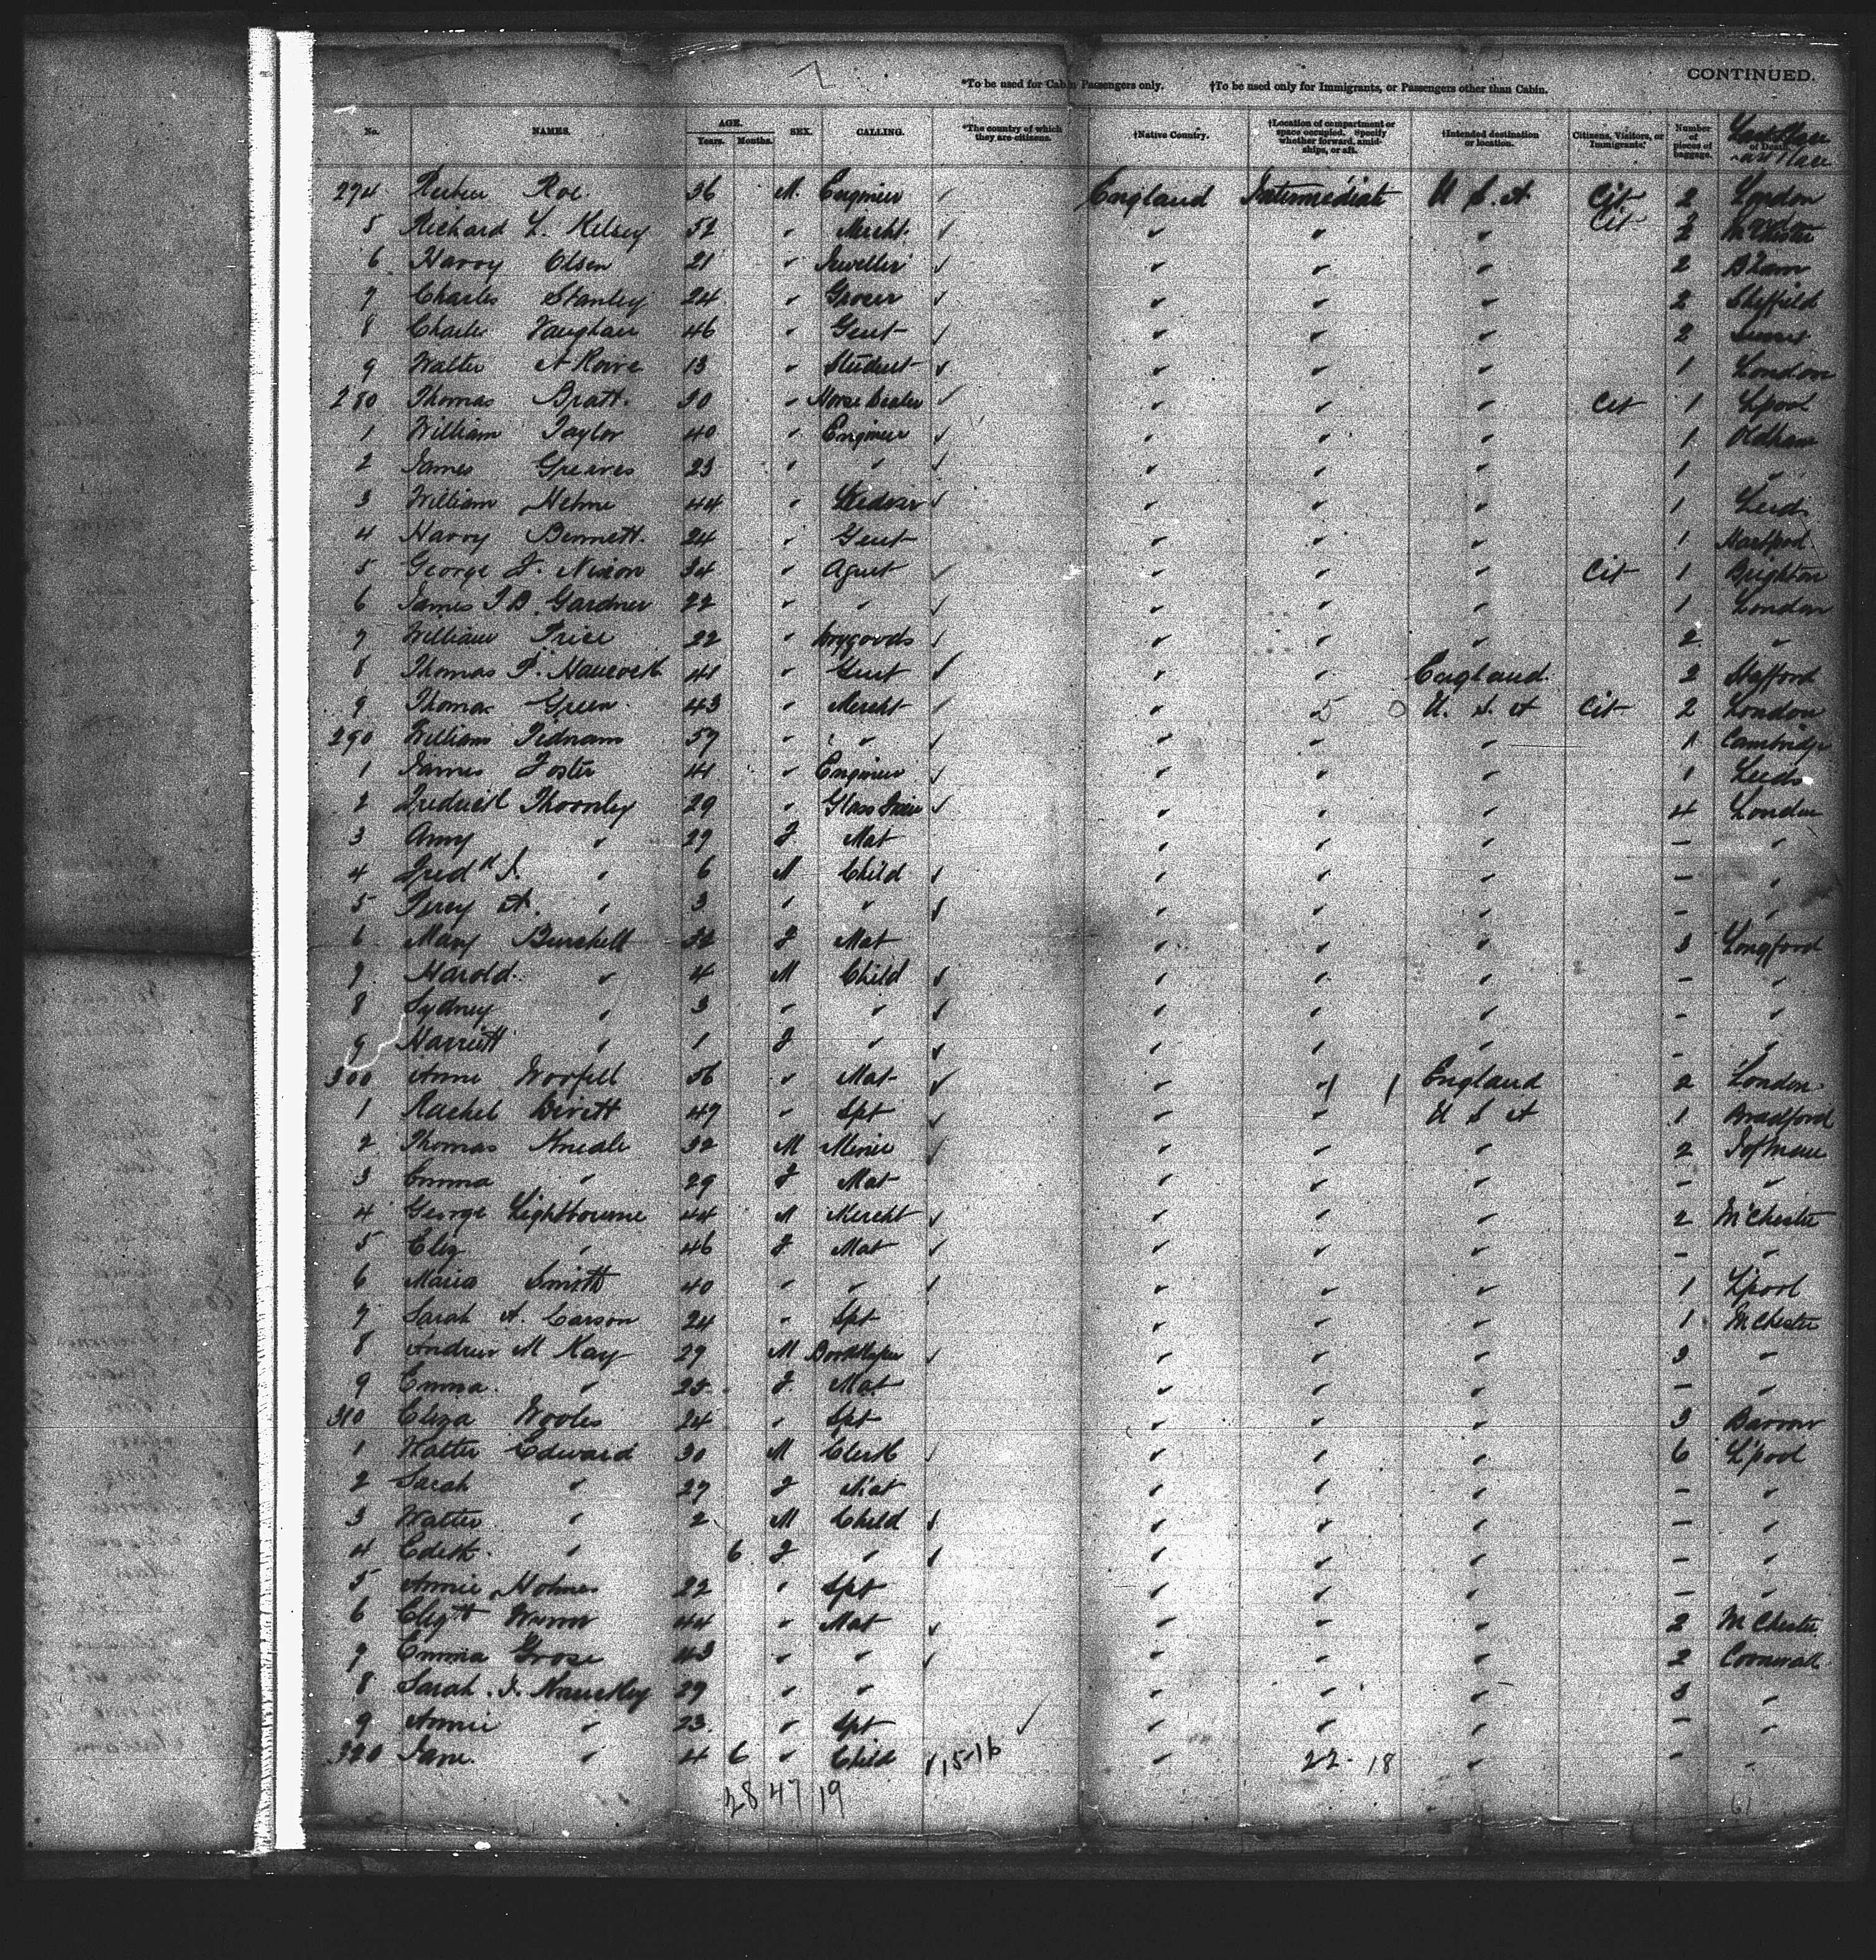 CONTINUED.
*To be used for Cabin Passengers only. †To be used only for Immigrants, or Passengers other than Cabin.
No. NAMES. AGE. Years. Months. SEX. CALLING. *The country of which they are citizens. †Native Country. †Location of compartment or space occupied. Specify whether forward, amidships, or aft. †Intended destination or location. Citizens, Visitors, or Immigrants. Number of pieces of baggage. of Death.
274 Roe 36 M. Engineer ✓ England Intermediate U S. A Cit 2 London
5 Richard L. Kelsey 52 " Mercht. ✓ " " " Cit 2
6 Harry Olsen 21 " Jeweller ✓ " " " 2 B'ham
7 Charles Stanley 24 " Grocer ✓ " " " 2 Sheffield
8 Charles Vaughan 46 " Gent ✓ " " " 2
9 Walter A Rowe 13 " Student ✓ " " " 1 London
280 Thomas Bratt. 30 " Horse Dealer ✓ " " " Cit 1 L'pool
1 William Taylor 40 " Engineer ✓ " " " 1 Oldham
2 James Greaves 23 " " ✓ " " " 1 "
3 William Helme 44 " ✓ " " " 1 Leeds
4 Harry Bennett. 24 " Gent " " " 1
5 George F. Nixon 34 " Agent ✓ " " " Cit 1 Brighton
6 James T B. Gardner 22 " " ✓ " " " 1 London
7 William Price 22 " Drygoods ✓ " " " 2 "
8 Thomas P. Hancock 41 " Gent ✓ " " England. 2 Stafford
9 Thomas Green 43 " Mercht ✓ " 5 0 U. S. A Cit 2 London
290 William 57 " " ✓ " " " 1 Cambridge
1 James Foster 41 " Engineer ✓ " " " 1 Leeds
2 Frederick Thornley 29 " Glass ✓ " " " 4 London
3 Amy " 27 F Mat " " " - "
4 Fredk J. " 6 M Child ✓ " " " - "
5 Percy A. " 3 " " ✓ " " " - "
6 Mary Burchell 32 F Mat " " " 3 Longford
7 Harold " 4 M Child ✓ " " " - "
8 Sydney " 3 " " ✓ " " " - "
9 Harriett " 1 F " ✓ " " " - "
300 Anne 56 " Mat ✓ " 1 1 England 2 London
1 Rachel 47 " Spt ✓ " " U S A 1 Bradford
2 Thomas Kneale 32 M Miner ✓ " " " 2 I of Man
3 Emma " 29 F Mat " " " - "
4 George Lightbourne 44 M Mercht ✓ " " " 2 M'Chester
5 Eliz " 46 F Mat ✓ " " " - "
6 Maria Smith 40 " " ✓ " " " 1 L'pool
7 Sarah A. Carson 24 " Spt " " " 1 M'Chester
8 Andrew M Kay 29 M Bookkeeper ✓ " " " 3 "
9 Emma " 25 F Mat " " " - "
310 Eliza 24 " Spt " " " 3 Barrow
1 Walter Edward 30 M Clerk ✓ " " " 6 L'pool
2 Sarah " 27 F Mat " " " - "
3 Walter " 2 M Child ✓ " " " - "
4 Edith " 6 F " ✓ " " " - "
5 Annie Holmes 22 " Spt " " " - "
6 Elizth 44 " Mat ✓ " " " 2 M'Chester
7 Emma Grose 43 " " ✓ " " " 2 Cornwall
8 Sarah. J. 29 " " " " " 3 "
9 Annie " 23 " Spt ✓ " " " - "
320 Jane " 4 6 " Child ✓ 15-16 " 22- 18 " - "
28 47 19
61